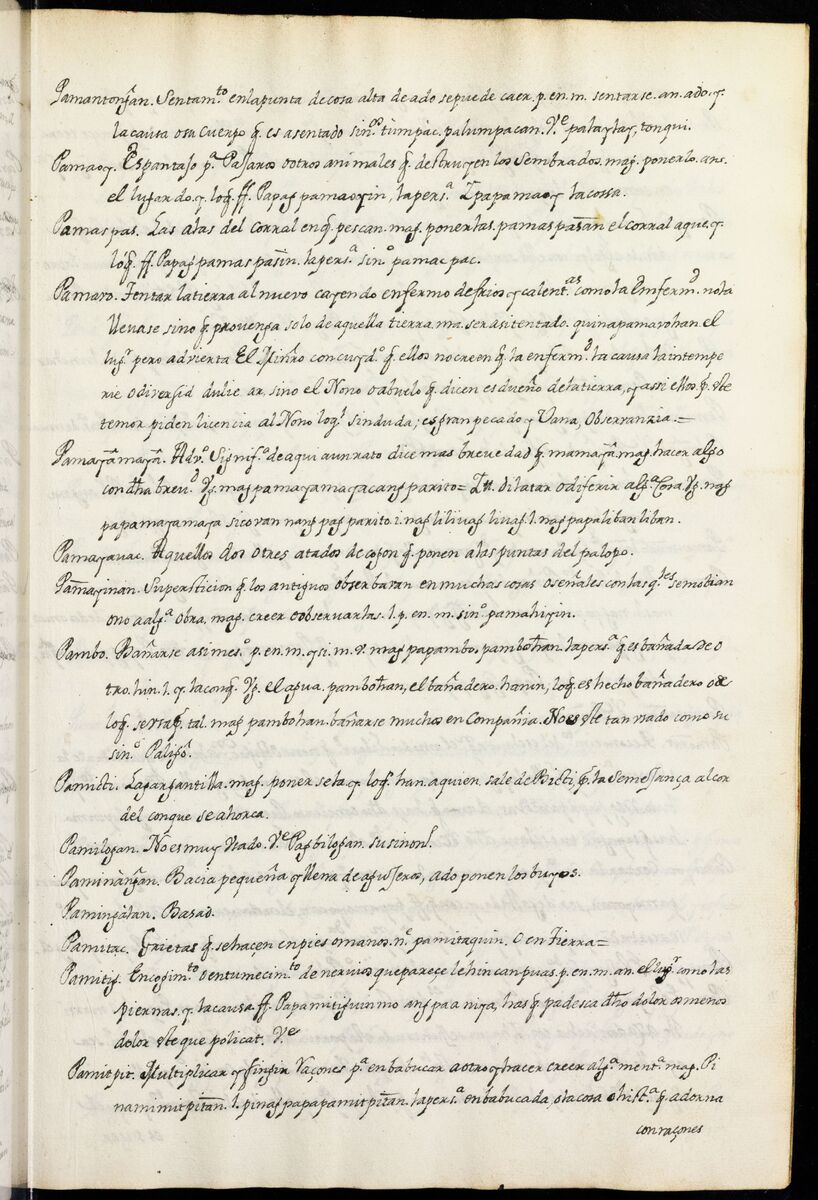 Pamantong̃an. Sentam.to en la punta de cosa alta de ado se puede caer. p. en. m. sentarse. an. ado. y.
la causa o su cuerpo q̃. es asentado sin.os tumpac. palumpacan. V.e patay tay, tonqui.
Pamaoy. Espantajo p.a Pajaros o otros animales q̃. destruyen los Sembrados. mag. ponerlo. an.
el lugar do. y. loq̃. ff. Papag pamaoyin, la pers.a Ipapamaoy la cossa.
Pamaspas. Las alas del corral en q̃. pescan. mag. ponerlas. pamaspasan el corral a que. y.
lo q̃. ff. Papag pamaspasin. la pers.a sin.o pamacpac.
Pamaro. Tentar la tierra al nuevo cayendo enfermo de frios y calent.as como la Emferm.d no la
llevase sino q̃. provenga solo de aquella tierra. ma. ser asi tentado. quinapamarohan. el
lug.r pero advierta El Minr̃o con cuyd.o q̃. ellos no creen q̃. la enferm.d la causa la intempe
rie o diversid dulie ar. sino el Nono o abuelo q̃. dicen es dueño de la tierra, y assi ellos p.r este
temor piden licencia al Nono loq̃l sin duda; es gran pecado y Vana, Observanzia.=
Pamayamaya. Adv.o Signif.o de aqui a un rato dice mas brevedad q̃. mamaya. mag. hacer algo
con dh̃a brev.d Vg. mag pamayamaya cang parito= It. dilatar o diferir alg.a Cosa. Vg. nag
papamayamaya sico van nang pag parito. i. nag liliuag liuag. l. nag papaliban liban.
Pamayauac. Aquellos dos o tres atados de cogon q̃. ponen a las puntas del palopo.
Pamayinan. Supersticion q̃. los antiguos observaban en muchas cosas o señales con las q.les se mobian
o no a alg.a obra. mag. creer o observarlas. l. p. en. m. sin.o pamahiyin.
Pambo. Bañarse a si mes.o p. en. m. y si. m. V. mag papambo. pambohan. la pers.a q̃ es bañada de o
tro. hin. l. y. la con q̃. Vg. el agua. pambohan, el bañadero. hanin, loq̃. es hecho bañadero o de
loq̃. se usa p.r tal. mag pambohan. bañarse muchos en Compañia. No es este tan usado como su
sin.o Paligo.
Pamicti. La gargantilla. mag. poner sela. y. loq̃. han. a quien. sale de Bicti, p.r la Semejança al cor
del con que se ahorca.
Pamilogan. No es muy Usado. V.e Pag bilogan. su sinon.l
Paminang̃an. Bacia pequeña y llena de agujeros, ado ponen los buyos.
Paming̃alan. Basad.
Pamitac. Grietas q̃. se haçen en pies o manos. n.o pamitaquin. O en Tierra=
Pamitig. Encogim.to o entumecim.to de nervios que pareçe le hincan puas. p. en. m. an. el lug.r como las
piernas. y. la causa. ff. Papamitiguin mo ang paa niya, has q̃. padesca dh̃o dolor es menos
dolor este que policat. V.e
Pamitpit. Multiplicar y fingir raçones p.a enbabucar a otro y hacer creer alg.a ment.a mag. Pi
namimitpitan. l. pinag papapamitpitan. la pers.a enbabucada, o la cosa o hist.a q̃. adorna
con raçones